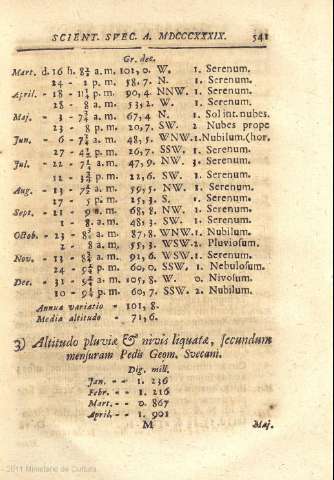 SCIENT. SVEC. A. MDCCCXXXIX. 541
Gr. dec.
Mart. d. 16 h. 8½ a. m. 101, 0. W. 1. Serenum.
- 24 - 1 p. m. 58, 7. N. 1. Serenum.
April. - 18 - p. m. 90, 4. NNW. 1. Serenum.
- 28 - 8 a. m. 53, 2. W. 1. Serenum.
Maj. - 3 - a. m. 67, 4 N. 1. Sol int. nubes.
- 23 - 8 p. m. 20, 7. SW. 2 Nubes prope
Jun. - 6 - a. m. 48, 5. WNW. 1. Nubilum. (hor.
- 27 - p. m. 26, 7. SSW. 1. Serenum.
Jul. - 22 - a. m. 47, 9. NW. 3. Serenum.
- 12 - p. m. 22, 6. SW. 1. Serenum.
Aug. - 13 - a. m. 59, 5. NW. 1. Serenum.
- 27 - 5 p. m. 25, 3. S. 1. Serenum.
Sept. - 21 - 9 a. m. 68, 8. NW. 3. Serenum.
- 1 - 8 a. m. 48, 3. SW. 1. Serenum.
Octob. - 23 - a. m. 87, 8. WNW. 1. Nubilum.
- 2 - 8 a. m. 55, 3. WSW. 2. Pluviosum.
Nov. - 13 - a. m. 92, 6. WSW. 1. Serenum.
- 24 - p. m. 60, 0. SSW. 1. Nebulosum.
Dec. - 31 - m. 105, 8. W. 0. Nivosum.
- 10 - p. m. 60, 7. SSW. 2. Nubilum.
Annua variatio = 101, 8.
Media altitudo = 71, 6.
3) Altitudo pluviæ & nivis liquatæ, secundum
mensuram Pedis Geom. Svecani.
Dig. mill.
Jan. - - 1. 236
Febr. - - 1. 216
Mart. - - 0. 867
April. - - 1. 901
M Maj.
2011 Ministerio de Cultura